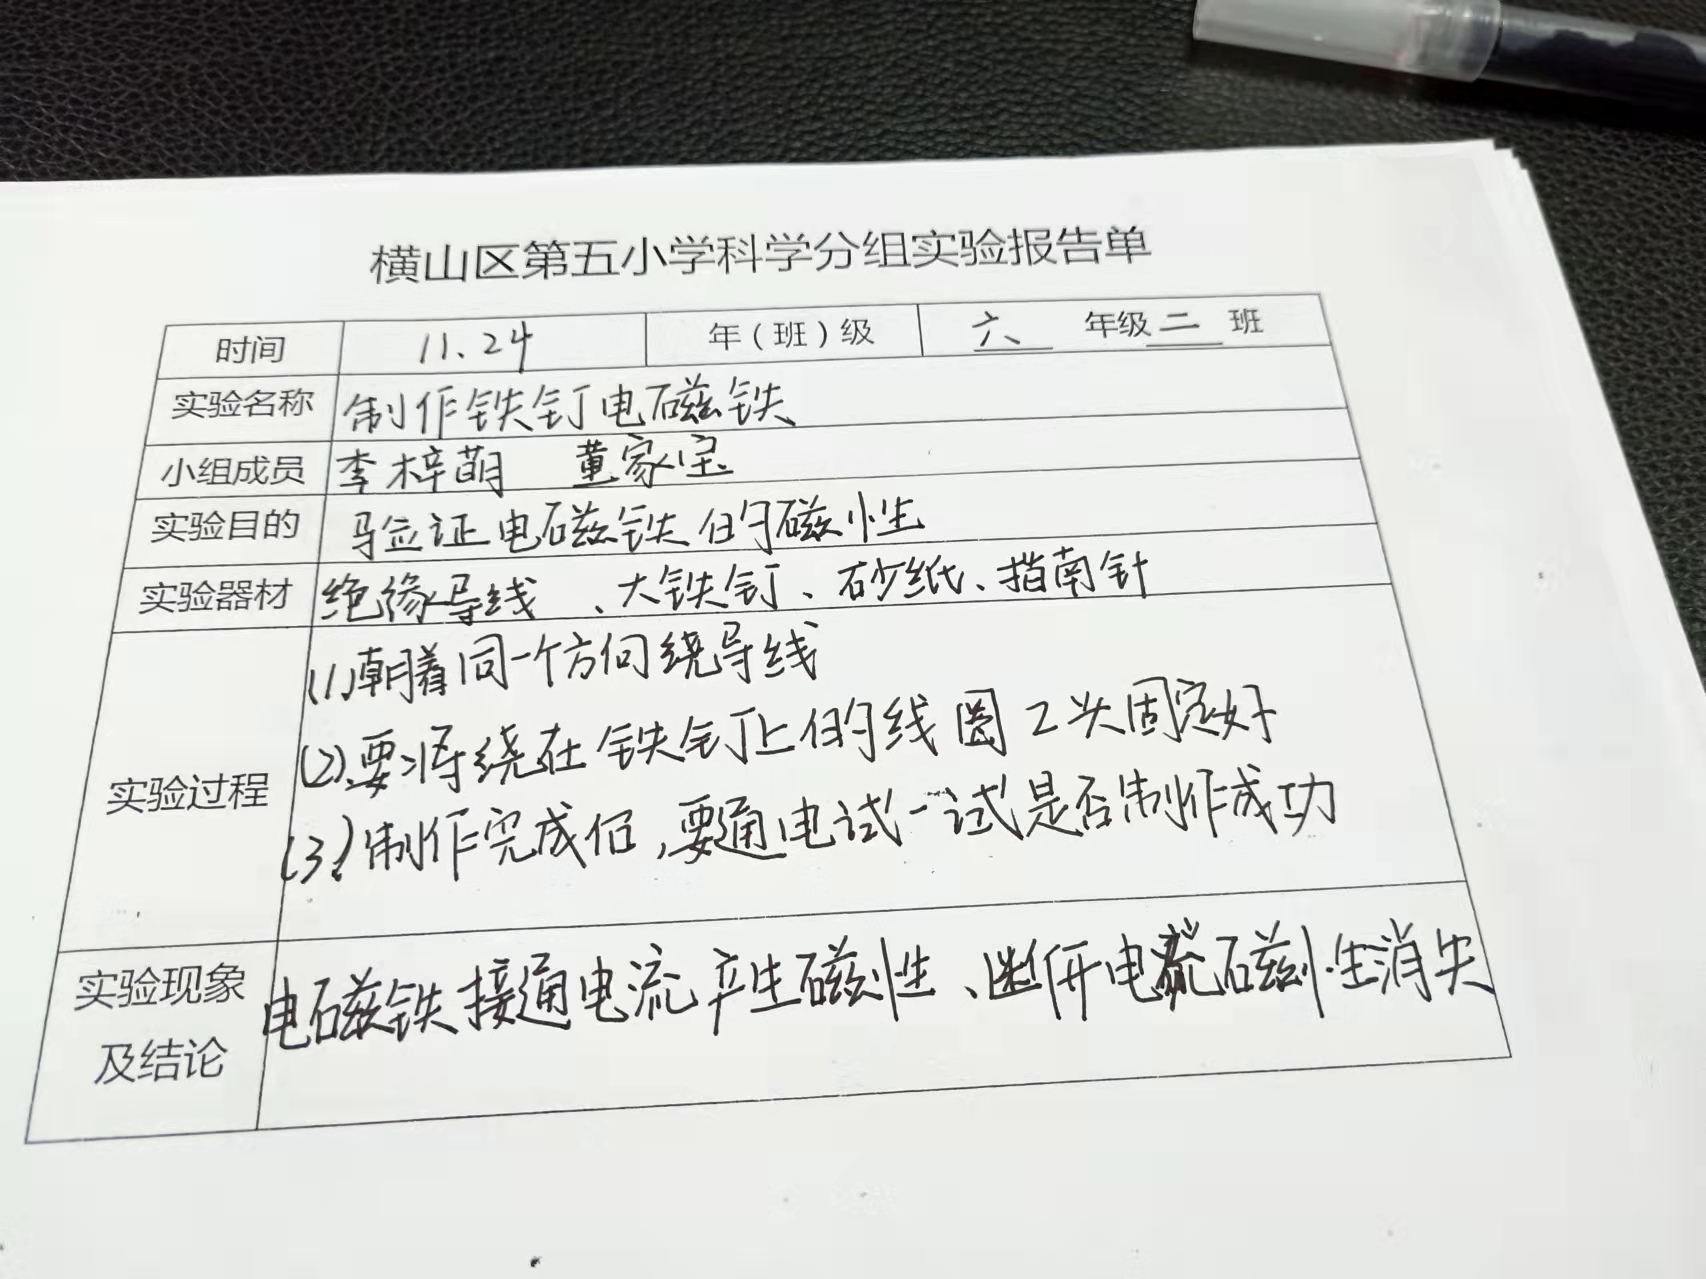 横山区第五小学科学分组实验报告单
时间 11.24 年(班)级 六 年级 二 班
实验名称 制作铁钉电磁铁
小组成员 李梓萌 董家宝
实验目的 验证电磁铁的磁性
实验器材 绝缘导线、大铁钉、砂纸、指南针
(1).朝着同一个方向绕导线
(2).要将绕在铁钉上的线圈2头固定好
实验过程
(3)制作完成后,要通电试一试是否制作成功
实验现象
电磁铁接通电流产生磁性、断开电流磁性消失
及结论